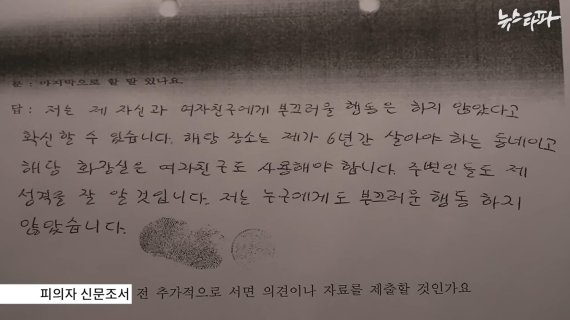 뉴스타파
문 : 마지막으로 할 말 있나요.
답 : 저는 제 자신과 여자친구에게 부끄러울 행동은 하지 않았다고
확신할 수 있습니다. 해당 장소는 제가 6년간 살아야 하는 동네이고
해당 화장실은 여자친구도 사용해야 합니다. 주변인들도 제
성격을 잘 알 것입니다. 저는 누군에게도 부끄러운 행동 하지
않았습니다.
피의자 신문조서 전 추가적으로 서면 의견이나 자료를 제출할 것인가요